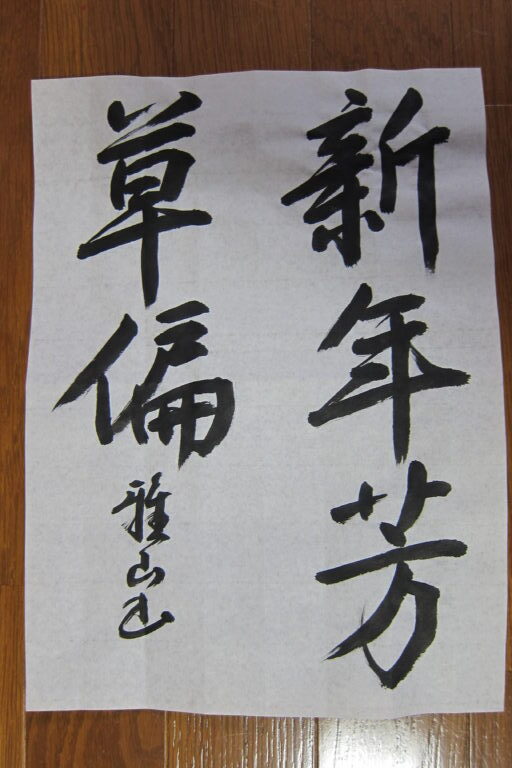 新年芳
草偏
雅山